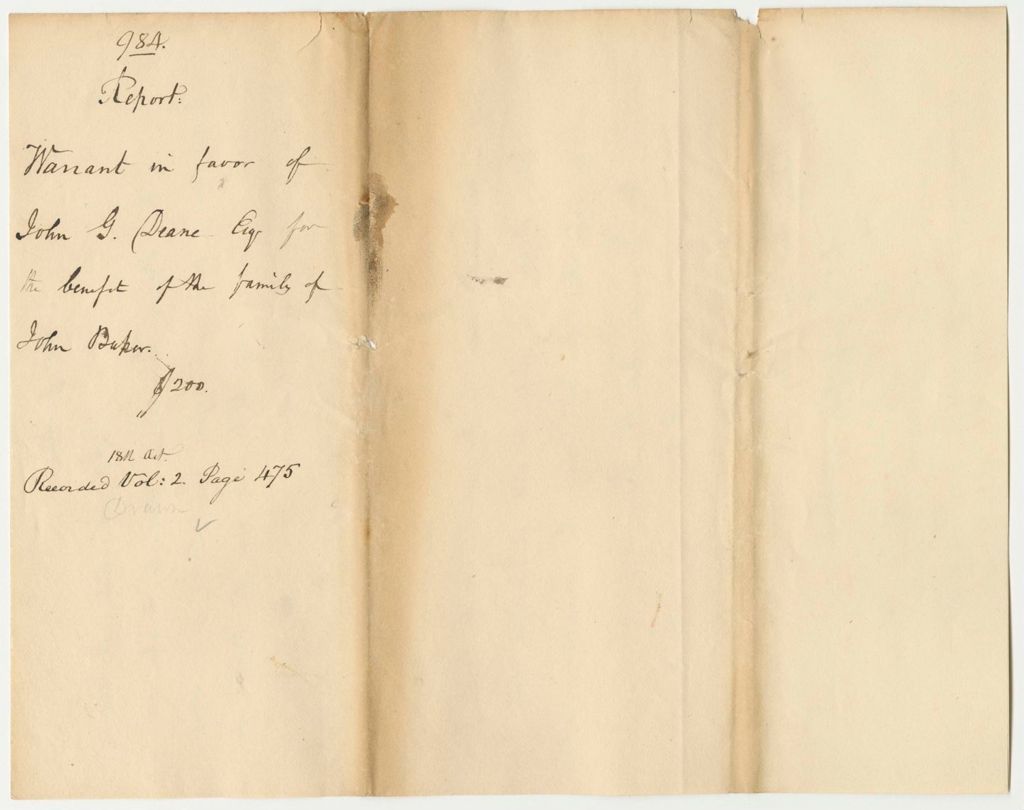 984.
Report.
Warrant in favor of
John G. Deane Esq. for
the benefit of the family of
John Baker.
$200.
18th Oct.
Recorded Vol: 2. Page 475
Drawn